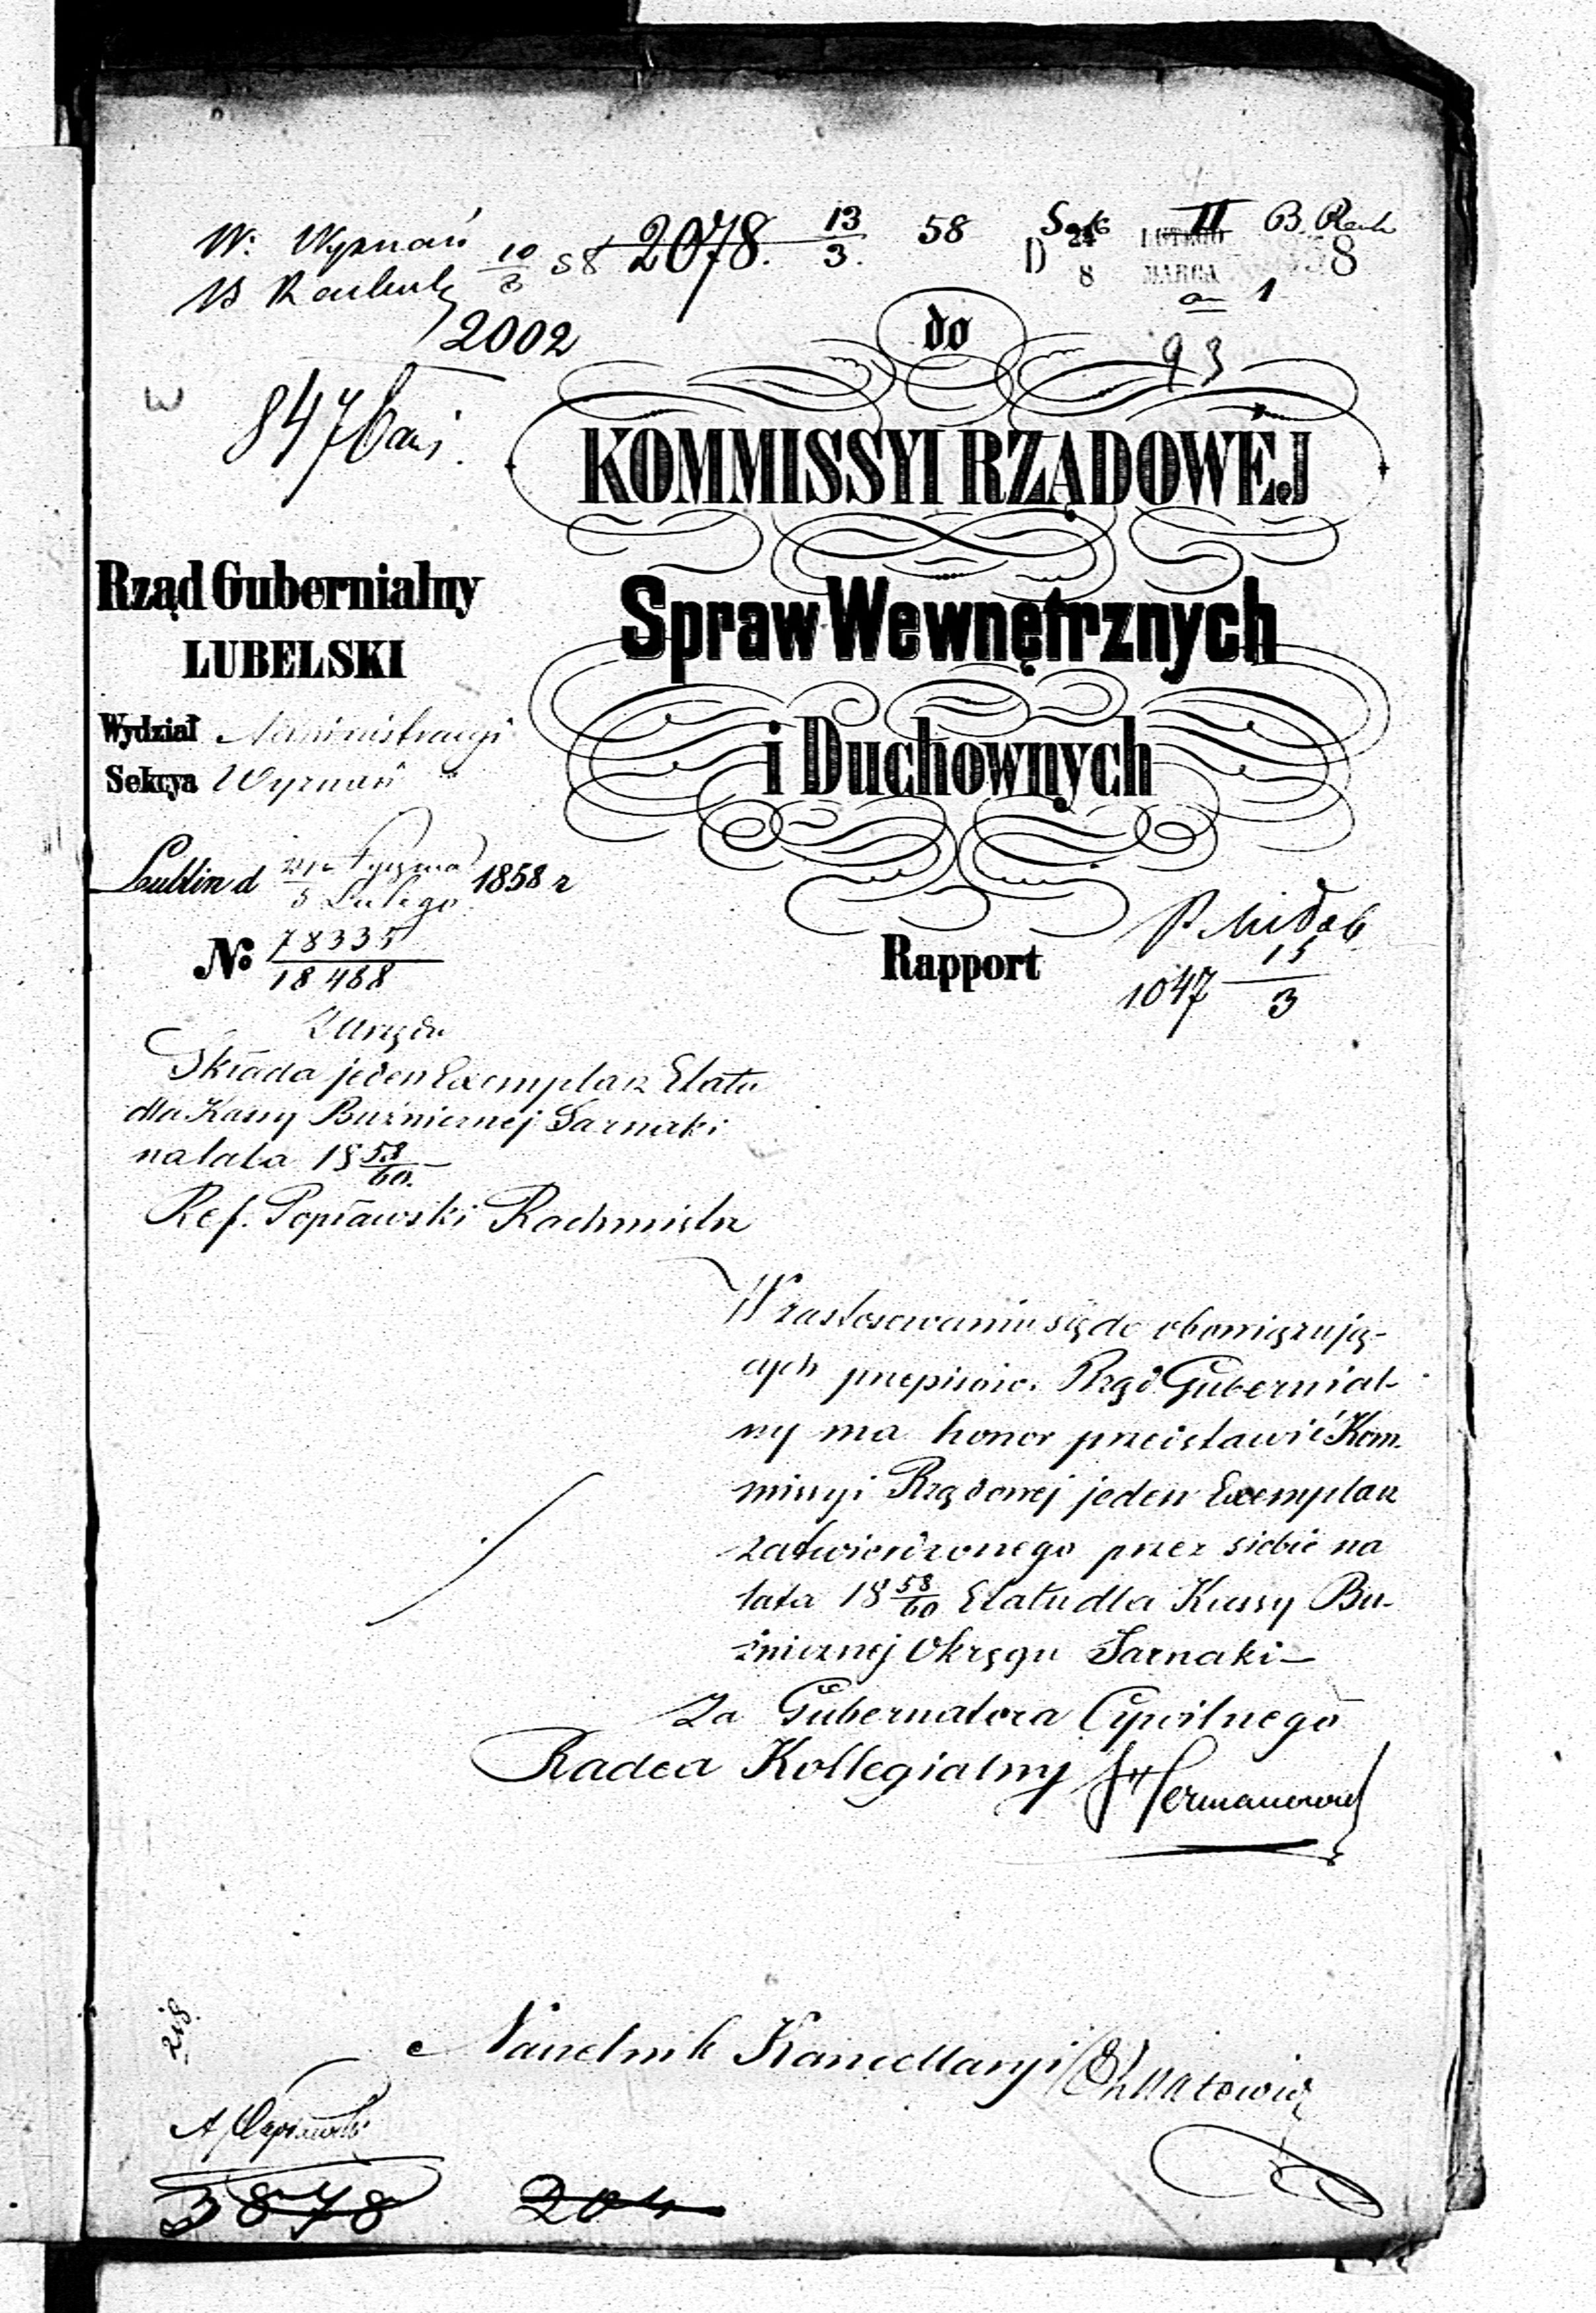 W. Wyznań 10/3 58 2078. 13/3. 58 Sek II B.
2002
D 24/8 LUTEGO/MARCA 1858
an 1
93
847
do
KOMMISSYI RZĄDOWÉJ
Spraw Wewnętrznych
i Duchownych
Rząd Gubernialny
LUBELSKI
Wydział Administracyi
Sekcya Wyznań
Lublin d Stycznia/5 Lutego 1858 r
No 78335/18488
Rapport
1047 15/3
Z Urzędu
Składa jeden Exemplarz Etatu
dla Kassy Bużnicznej Sarnaki
na lata 18 58/60.
Ref. Popławski Rachmistrz
W zastosowaniu się do obowiązują-
cych przepisów. Rząd Gubernial-
ny ma honor przedstawić Kom-
missyi Rządowej jeden Exemplarz
zatwierdzonego przez siebie na
lata 18 58/60 Etatu dla Kassy Bu-
żnicznej Okręgu Sarnaki –
Za Gubernatora Cywilnego
Radca Kollegialny Hermanowicz
Naczelnik Kancellaryi
A. Popławski
3878 204